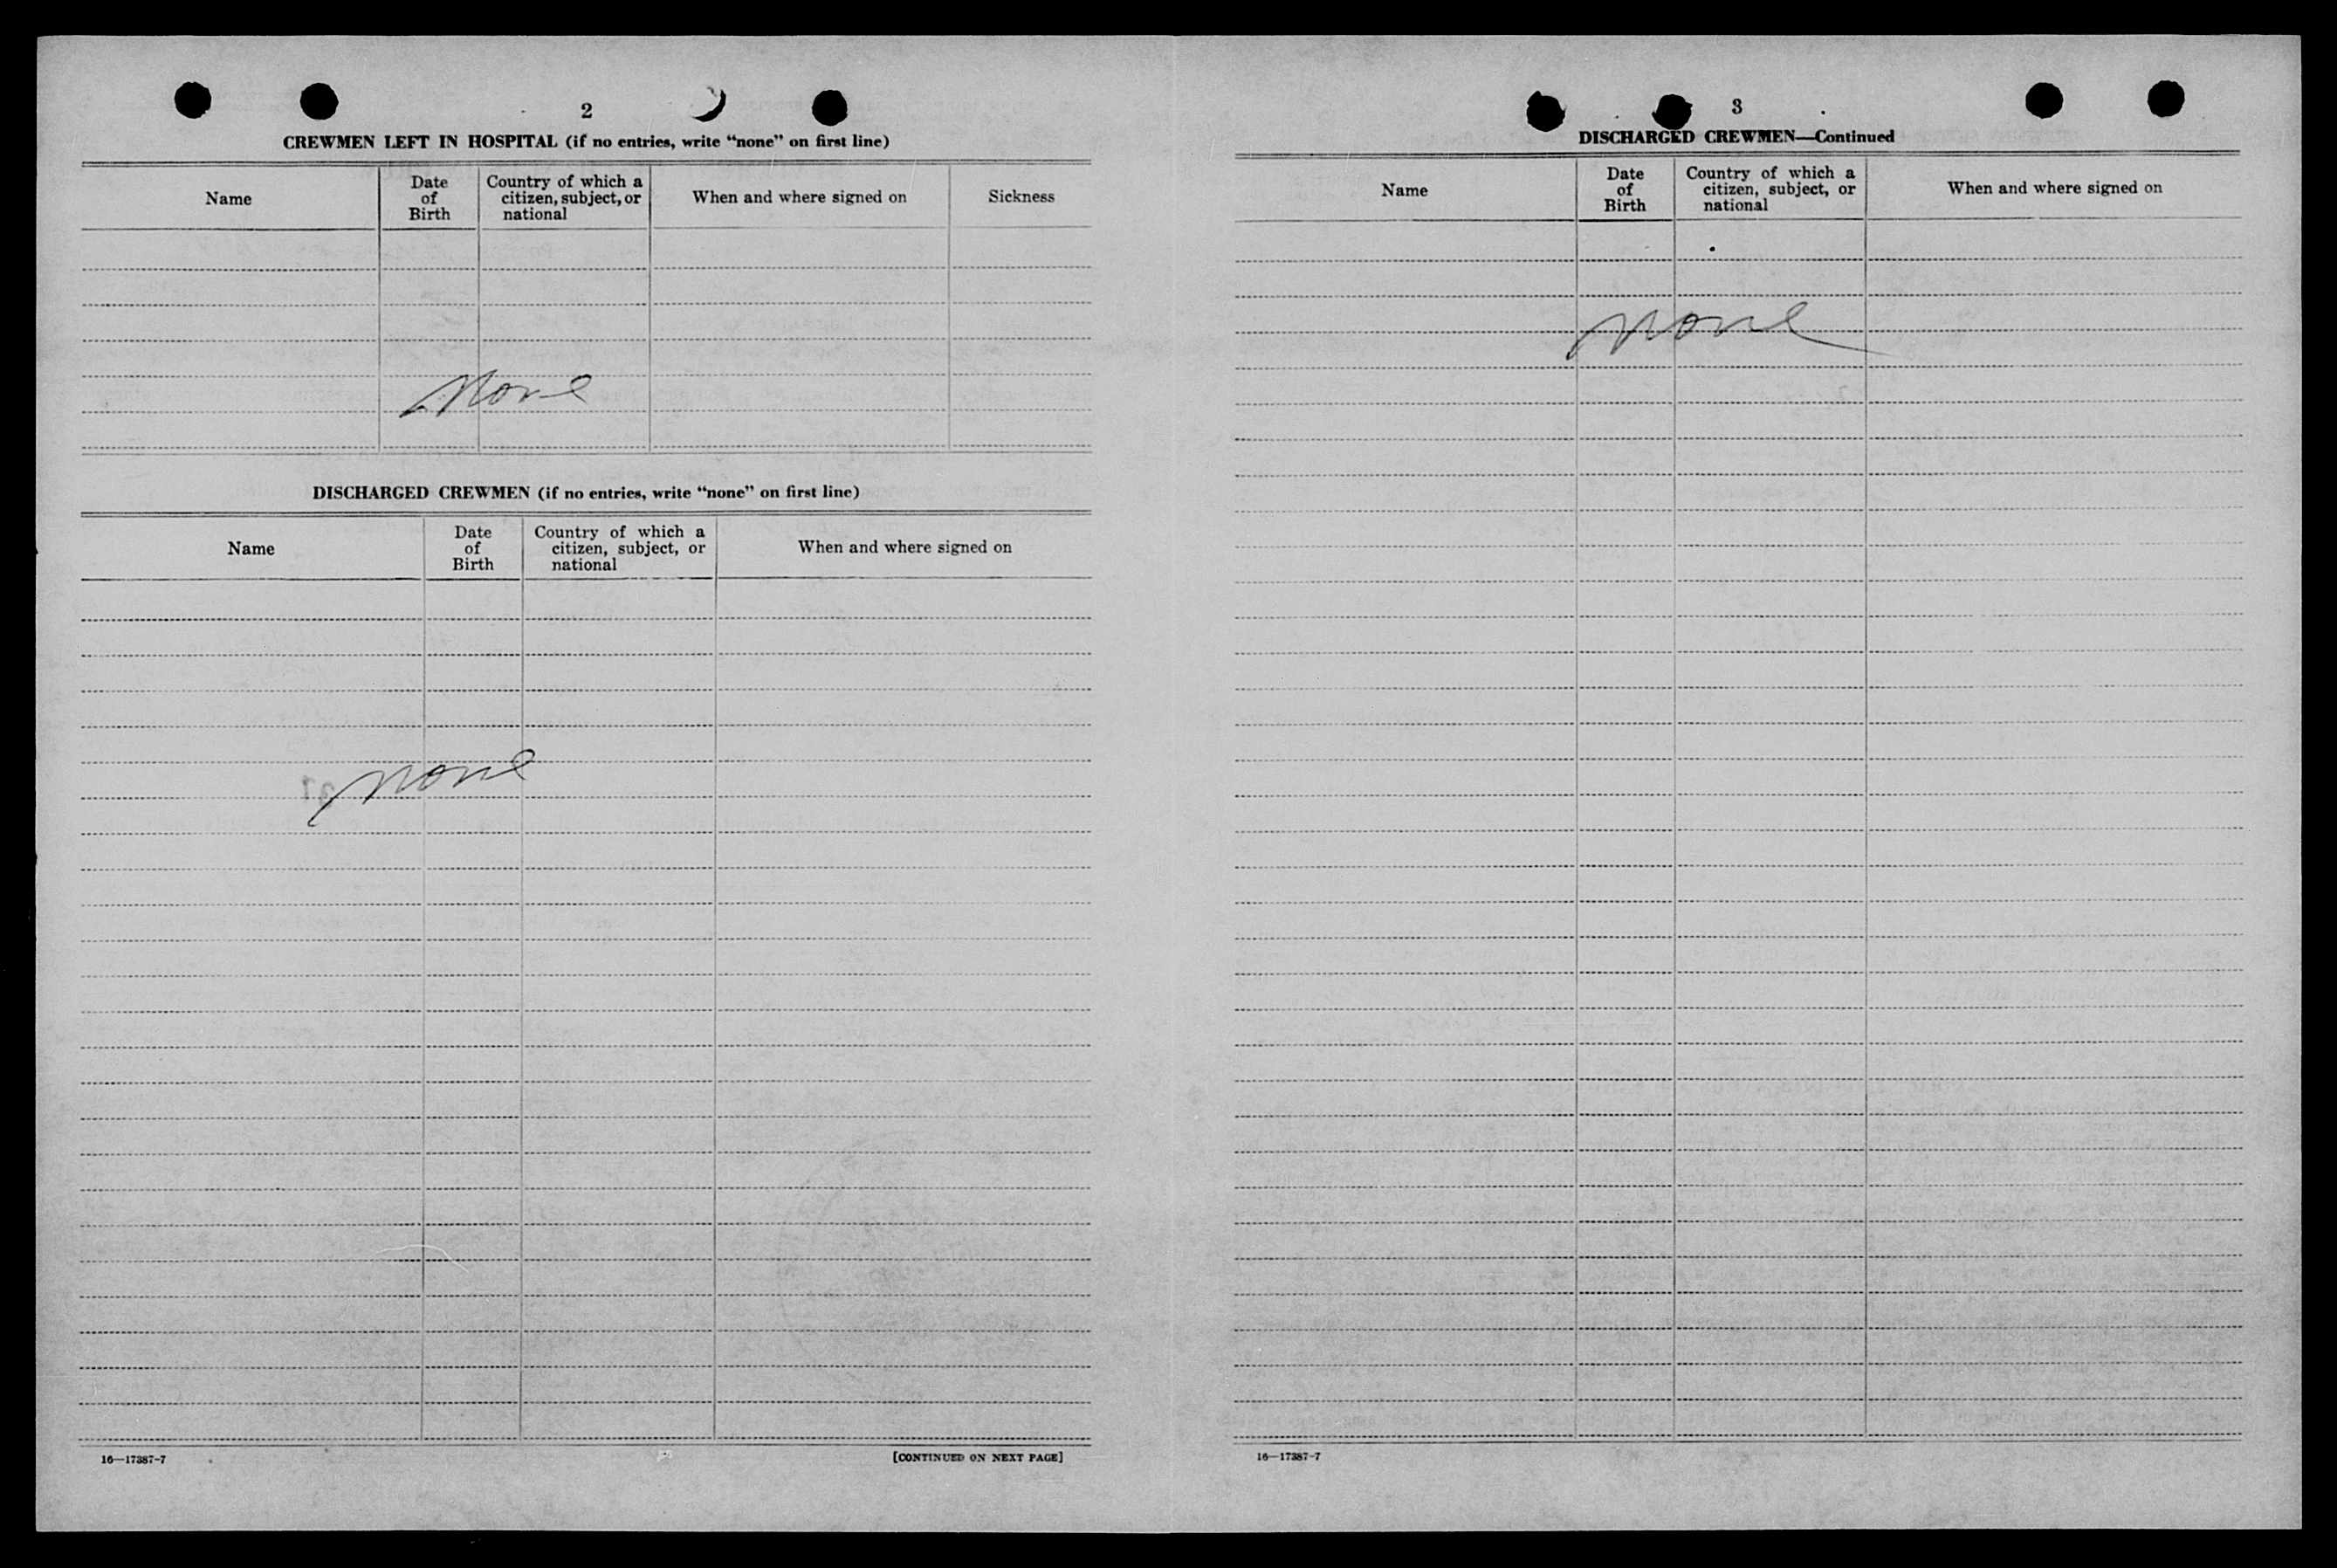 2
CREWMEN LEFT IN HOSPITAL (if no entries, write “none” on first line)
Name
Date
of
Birth
Country of which a
citizen, subject, or
national
When and where signed on
Sickness
None
DISCHARGED CREWMEN (if no entries, write “none” on first line)
Name
Date
of
Birth
Country of which a
citizen, subject, or
national
When and where signed on
none
16—17387-7
[CONTINUED ON NEXT PAGE]
3
DISCHARGED CREWMEN—Continued
Name
Date
of
Birth
Country of which a
citizen, subject, or
national
When and where signed on
none
16—17387-7